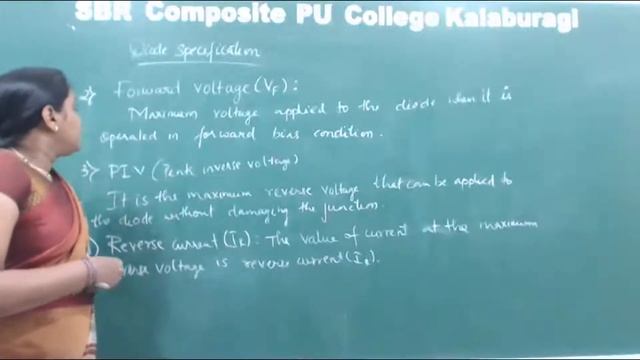 SBR Composite PU College Kalaburagi
Diode Specification
2) Forward voltage (VF):
Maximum voltage applied to the diode when it is
operated in forward bias condition.
3) PIV (Peak inverse voltage)
It is the maximum reverse voltage that can be applied to
the diode without damaging the junction.
) Reverse current (IR): The value of current at the maximum
voltage is reverse current (IR).